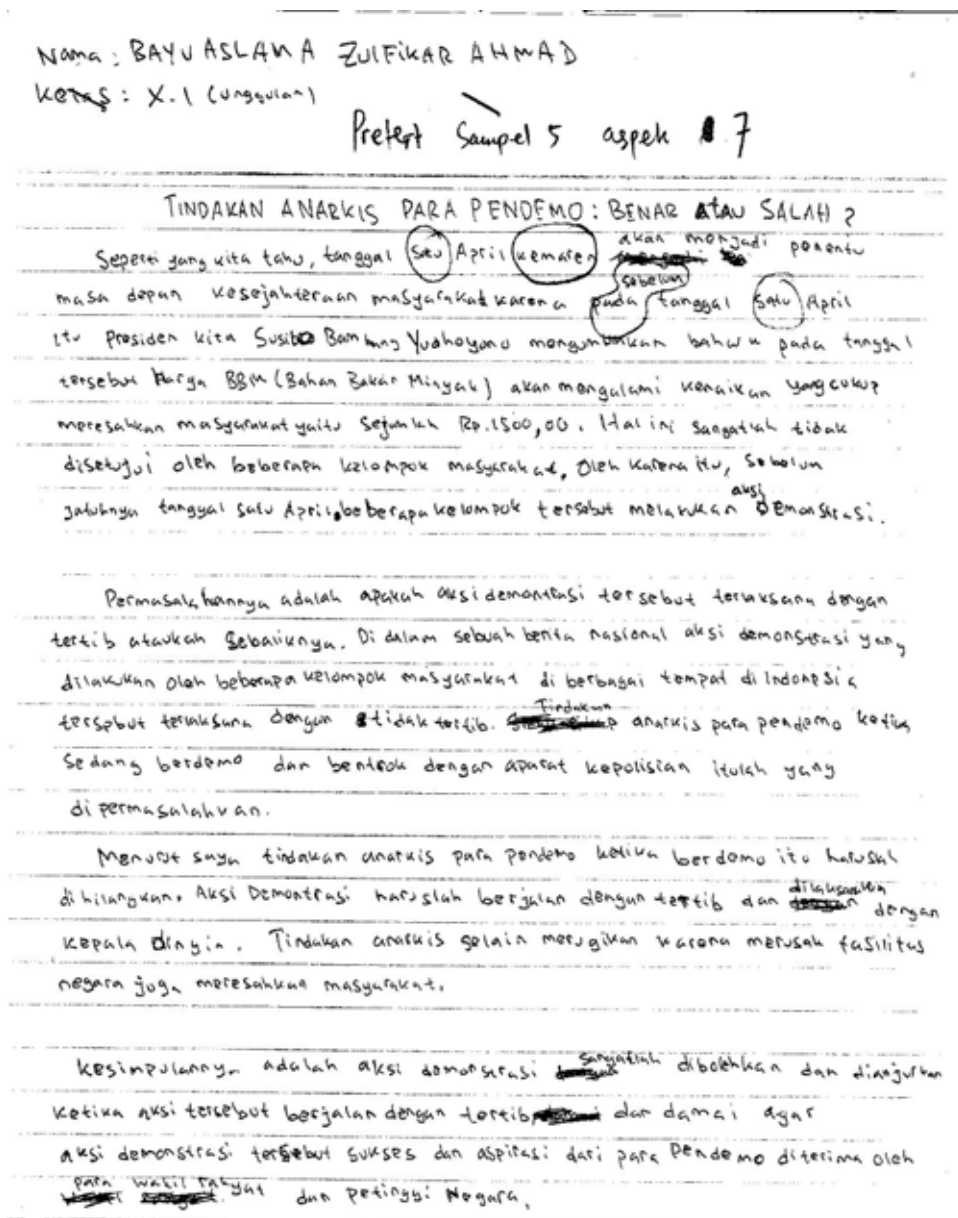 Nama : BAYU ASLAMA ZULFIKAR AHMAD
Kelas : X.1 (unggulan)
Pretest Sampel 5 aspek 7
TINDAKAN ANARKIS PARA PENDEMO : BENAR ATAU SALAH ?
Seperti yang kita tahu, tanggal satu April kemaren akan menjadi penentu
masa depan kesejahteraan masyarakat karena sebelum pada tanggal satu April
itu Presiden kita Susilo Bambang Yudhoyono mengumumkan bahwa pada tanggal
tersebut Harga BBM (Bahan Bakar Minyak) akan mengalami kenaikan yang cukup
meresahkan masyarakat yaitu sejumlah Rp.1500,00. Hal ini sangatlah tidak
disetujui oleh beberapa kelompok masyarakat, Oleh karena itu, sebelum
jatuhnya tanggal satu April, beberapa kelompok tersebut melakukan aksi Demonstrasi.
Permasalahannya adalah apakah aksi demontrasi tersebut terlaksana dengan
tertib ataukah sebaliknya. Di dalam sebuah berita nasional aksi demonstrasi yang
dilakukan oleh beberapa kelompok masyarakat di berbagai tempat di Indonesia
tersebut terlaksana dengan tidak tertib. Tindakan anarkis para pendemo ketika
sedang berdemo dan bentrok dengan aparat kepolisian itulah yang
di permasalahkan.
Menurut saya tindakan anarkis para pendemo ketika berdemo itu haruslah
di hilangkan. Aksi Demontrasi haruslah berjalan dengan tertib dan dilaksanakan dengan
kepala dingin. Tindakan anarkis selain merugikan karena merusak fasilitas
negara juga meresahkan masyarakat.
Kesimpulannya adalah aksi demonstrasi sangatlah dibolehkan dan dianjurkan
ketika aksi tersebut berjalan dengan tertib dan damai agar
aksi demonstrasi tersebut sukses dan aspirasi dari para Pendemo diterima oleh
para wakil rakyat dan petinggi Negara.